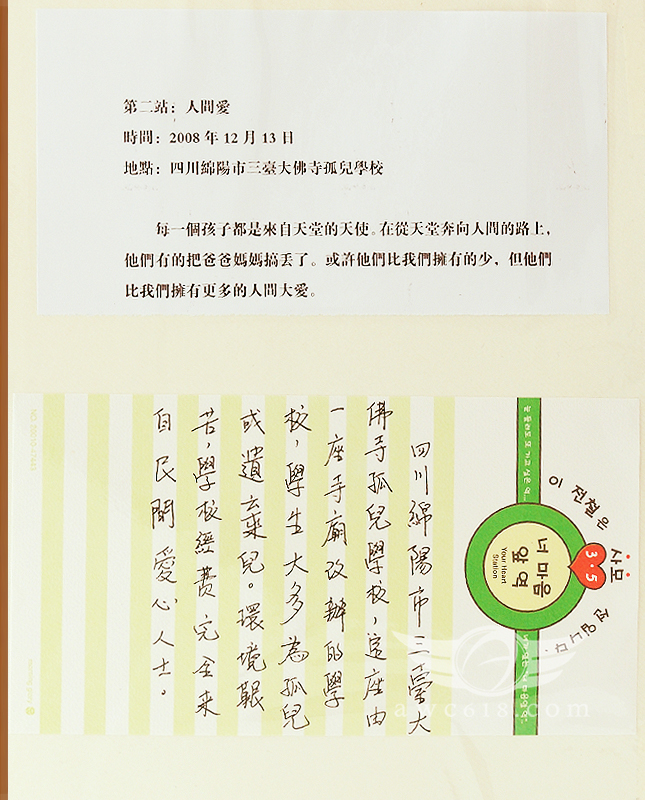 第二站：人間愛
時間：2008年12月13日
地點：四川綿陽市三臺大佛寺孤兒學校
每一個孩子都是來自天堂的天使。在從天堂奔向人間的路上，
他們有的把爸爸媽媽搞丟了。或許他們比我們擁有的少，但他們
比我們擁有更多的人間大愛。
四川綿陽市三臺大
佛寺孤兒學校，這座由
一座寺廟改辦的學
校，學生大多為孤兒
或遺棄兒。環境艱
苦，學校經費完全來
自民間愛心人士。
이 전철은
사모
3.5
전입니다.
너 마음
앞 역
Your Heart
Station
awc618.com